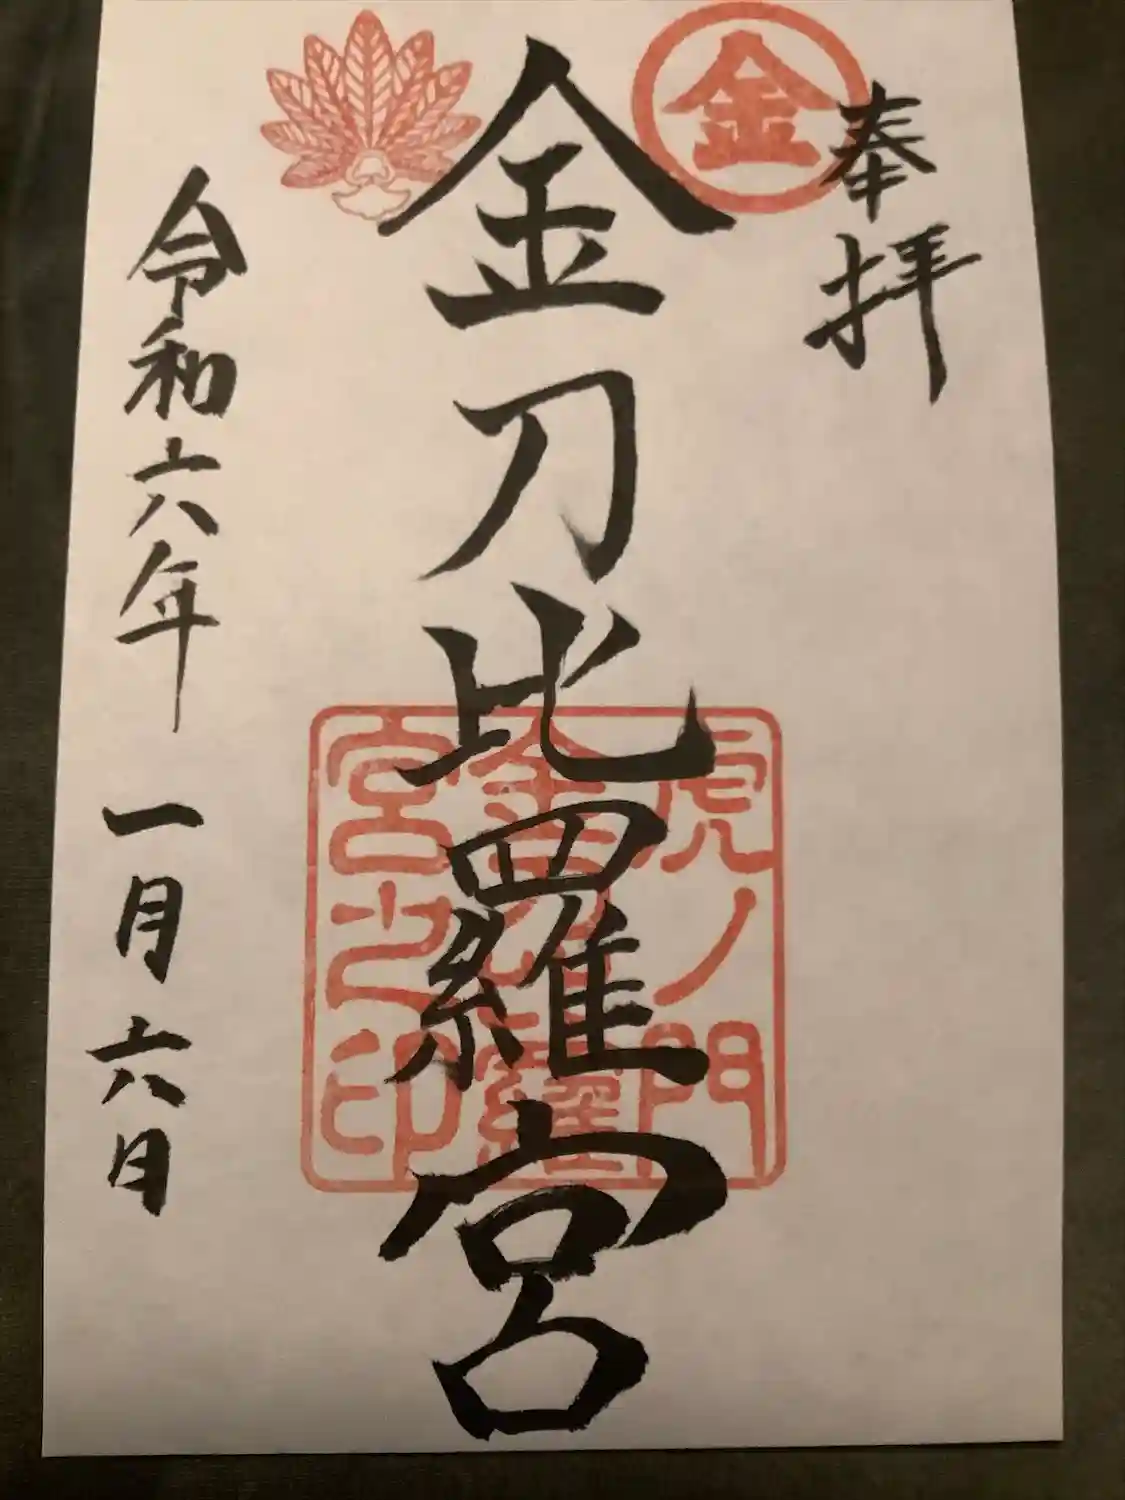 奉拝
金
金刀比羅宮
虎ノ門
金刀比羅
宮之印
令和六年一月六日